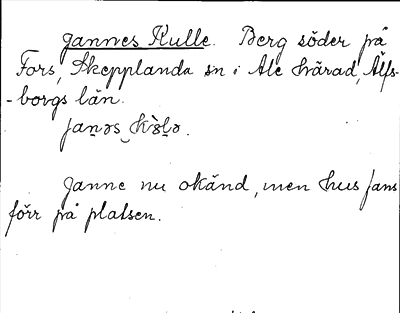 Jannes Kulle. Berg söder på
Fors, Skepplanda sn i Ale härad, Älfs-
-borgs län.
Janne nu okänd, men hus fans
förr på platsen.